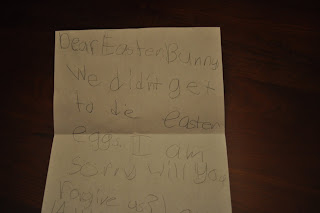 Dear Easter Bunny
We didn't get
to die easter
eggs. I am
sorry will you
Forgive us?!